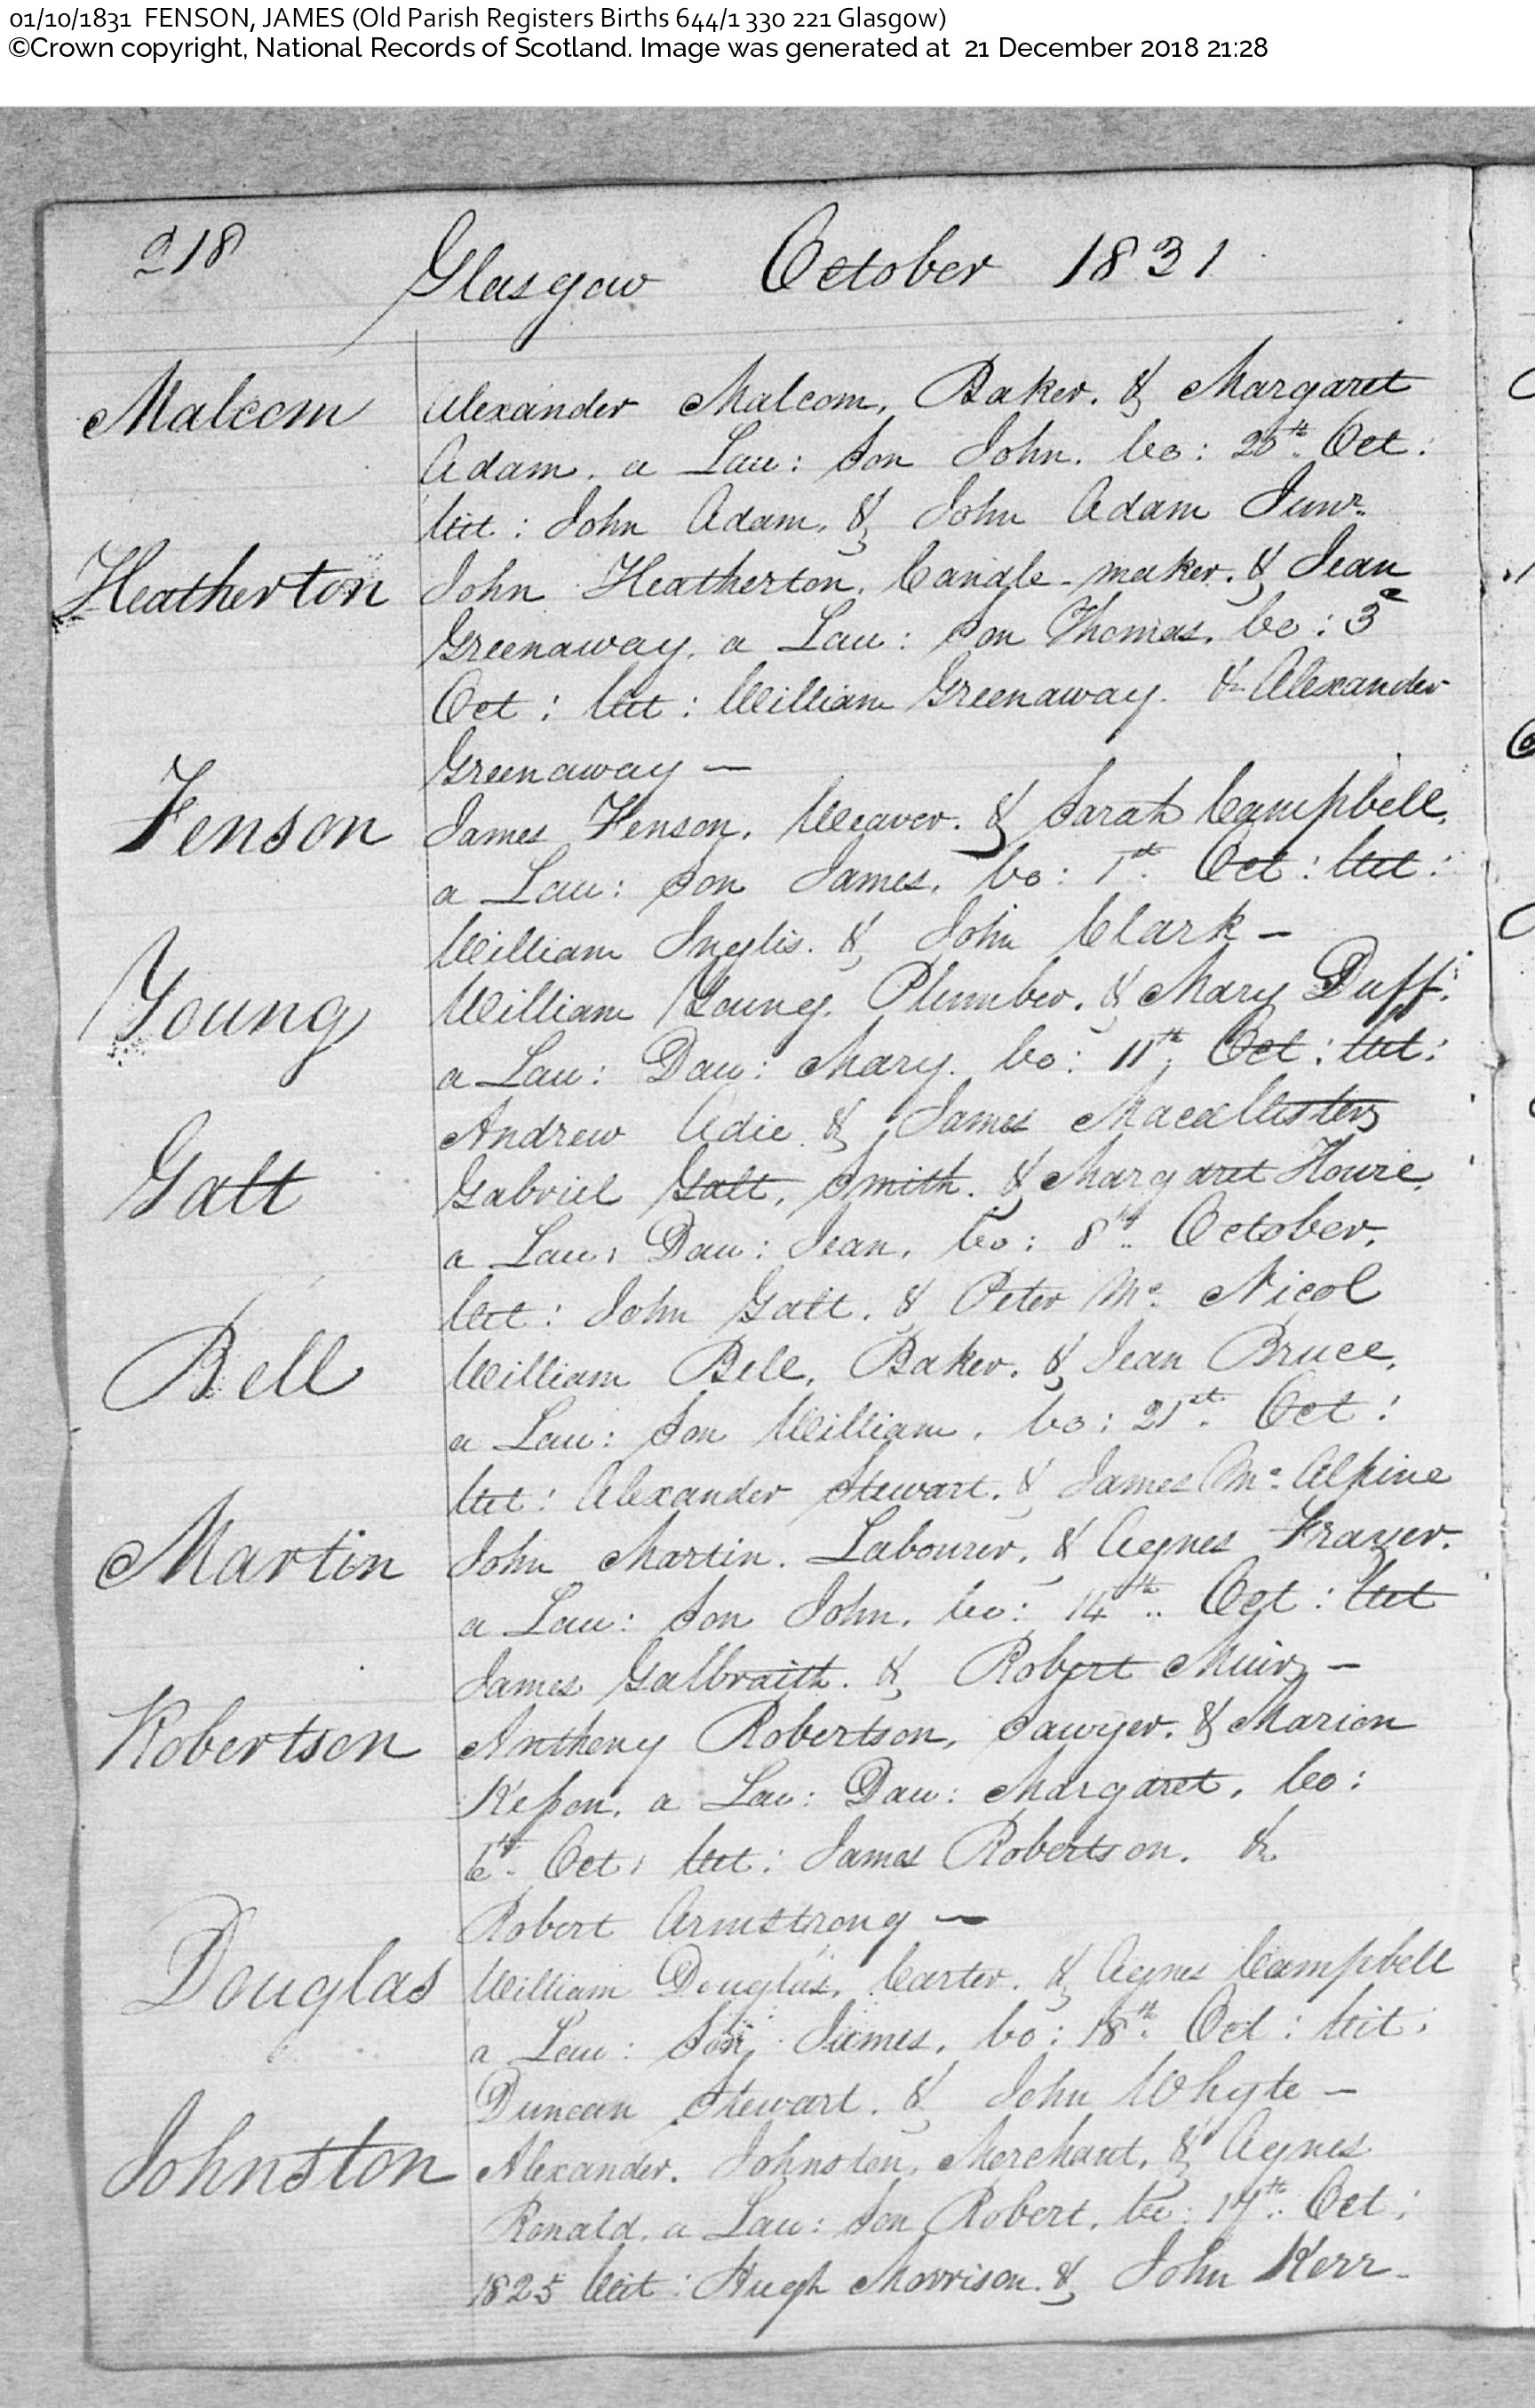 01/10/1831 FENSON, JAMES (Old Parish Registers Births 644/1 330 221 Glasgow)
©Crown copyright, National Records of Scotland. Image was generated at 21 December 2018 21:28
218
Glasgow October 1831
Malcom
Alexander Malcom, Baker. & Margaret
Adam. a Law: Son John. bo: 25th Oct:
Wit: John Adam, & John Adam Junr.
Heatherton
John Heatherton, Candle-maker. & Jean
Greenaway. a Law: Son Thomas. bo: 3
Oct: Wit: William Greenaway. & Alexander
Greenaway —
Fenson
James Fenson, Weaver. & Sarah Campbell,
a Law: Son James, bo: 1st Oct: Wit:
William Inglis. & John Clark —
Young
William Young, Plumber. & Mary Duff.
a Law: Dau: Mary. bo: 11th Oct: Wit:
Andrew Adie & James Macallister
Galt
Gabriel Galt, Smith. & Margaret Howie,
a Law: Dau: Jean, bo: 8th October,
Wit: John Galt. & Peter Mc. Nicol
Bell
William Bell, Baker. & Jean Bruce,
a Law: Son William, bo: 21st Oct:
Wit: Alexander Stewart. & James Mc Alpine
Martin
John Martin. Labourer, & Agnes Frazer.
a Law: Son John, bo: 14th Oct: Wit
James Galbraith. & Robert Muir —
Robertson
Anthony Robertson, Sawyer. & Marion
a Law: Dau: Margaret, bo:
6th Oct: Wit: James Robertson. &
Robert Armstrong —
Douglas
William Douglas, Carter. & Agnes Campbell
a Law: Son James, bo: 18th Oct: Wit:
Duncan Stewart. & John Whyte —
Johnston
Alexander. Johnston, Merchant, & Agnes
Ronald. a Law: Son Robert, bo: Oct:
1825 Wit: Hugh Morrison. & John Kerr